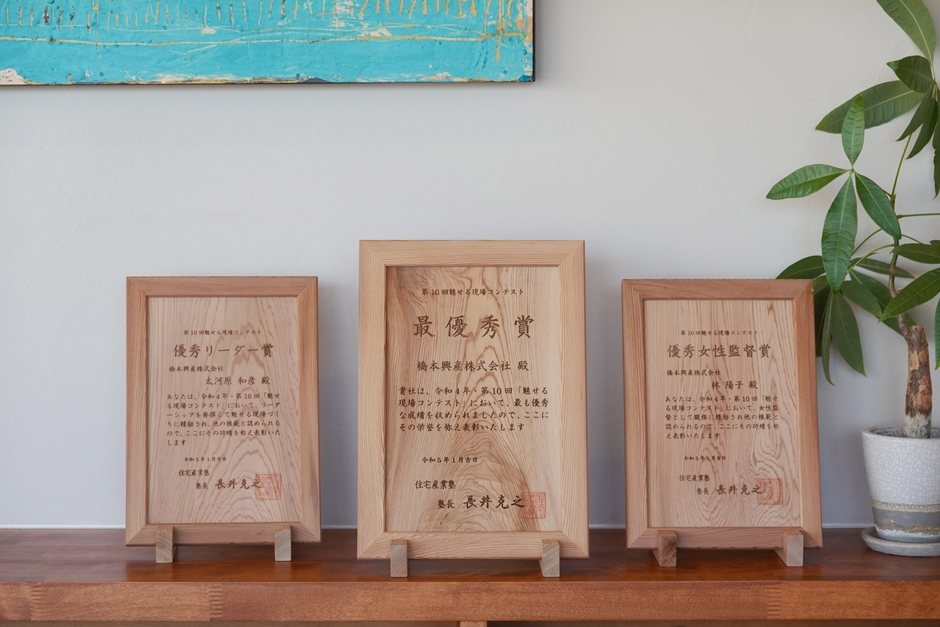 第10回魅せる現場コンテスト
優秀リーダー賞
橋本興産株式会社
太河原 和彦 殿
あなたは、令和4年・第10回「魅せ
る現場コンテスト」において、リーダ
ーシップを発揮して魅せる現場づく
りに精励され、他の模範と認められる
ので、ここにその功績を称え表彰いた
します
令和5年1月吉日
住宅産業塾
塾長 長井克之
第10回魅せる現場コンテスト
最優秀賞
橋本興産株式会社 殿
貴社は、令和4年・第10回「魅せる
現場コンテスト」において、最も優秀
な成績を収められましたので、ここに
その栄誉を称え表彰いたします
令和5年1月吉日
住宅産業塾
塾長 長井克之
第10回魅せる現場コンテスト
優秀女性監督賞
橋本興産株式会社
林 陽子 殿
あなたは、令和4年・第10回「魅せ
る現場コンテスト」において、女性監
督として職務に精励され、他の模範と
認められますので、ここにその功績を称
え表彰いたします
令和5年1月吉日
住宅産業塾
塾長 長井克之